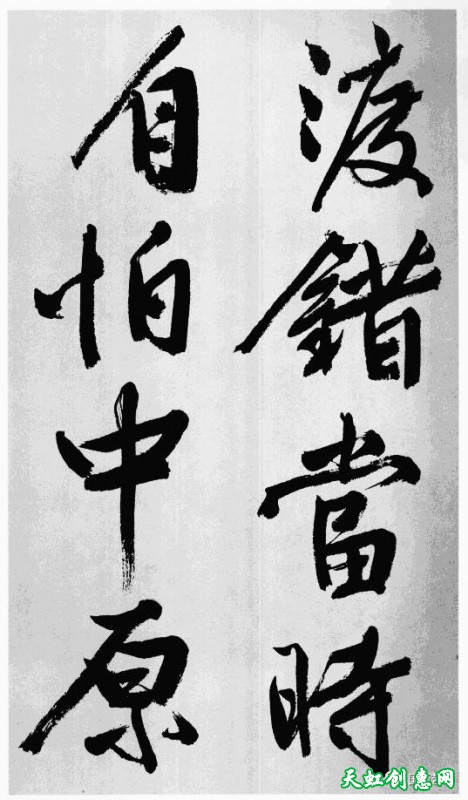 渡錯當時
自怕中原
天虹创惠网